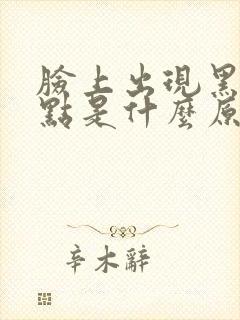 臉上出現黑
點是什麼原
辛木辭